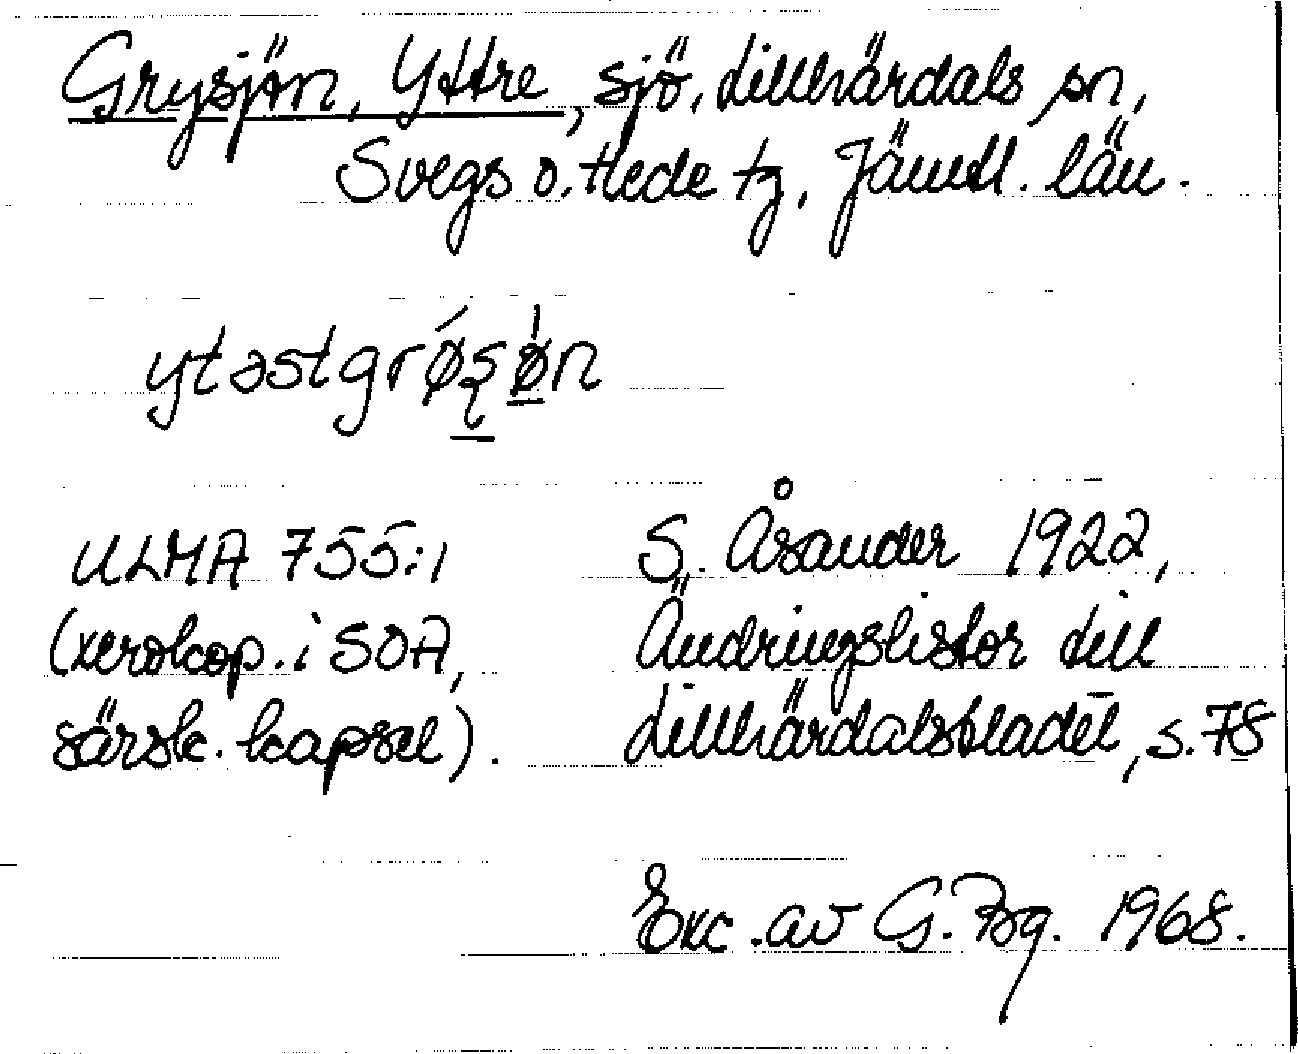 Grysjön, Yttre, sjö, Lillhärdals sn,
Svegs o. Hede tg, Jämtl. län.
ytəstgrǿʂø̀n
ULMA 755:1
(xerokop. i SOA,
särsk. kapsel).
S. Åsander 1922,
Ändringslistor till
Lillhärdalsbladet, s. 78
Exc. av G. Bg. 1968.